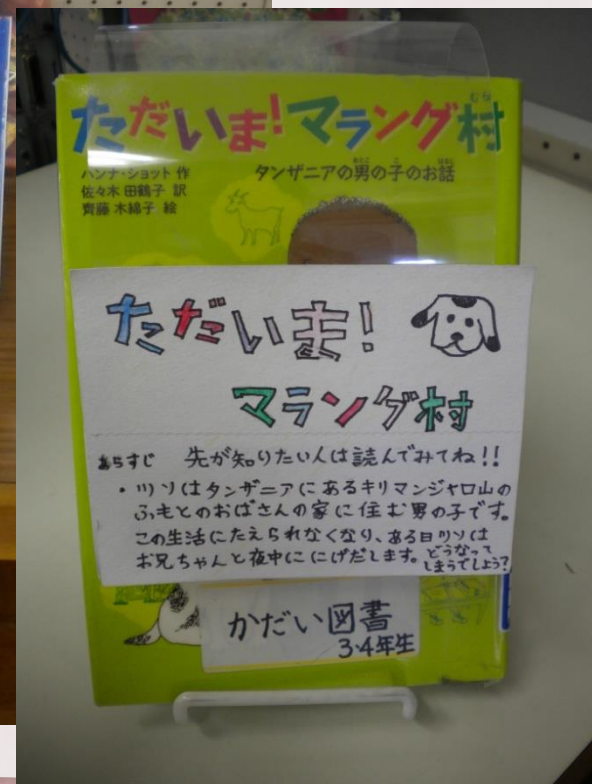 ただいま!マラング村
むら
ハンナ・ショット 作
佐々木 田鶴子 訳
齊藤 木綿子 絵
タンザニアの男の子のお話
おとこ こ はなし
ただいま!
マラング村
あらすじ 先が知りたい人は読んでみてね!!
・ツソはタンザニアにあるキリマンジャロ山の
ふもとのおばさんの家に住む男の子です。
この生活にたえられなくなり、ある日ツソは
お兄ちゃんと夜中ににげだします。どうなって
しまうでしょう?
かだい図書
3・4年生